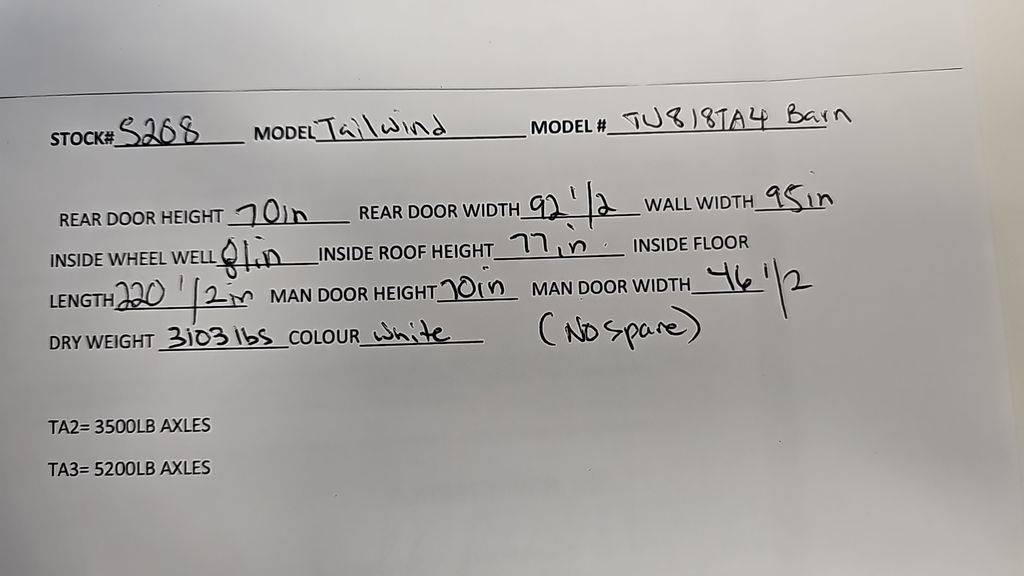 STOCK# S268 MODEL Tailwind MODEL # TW818TA4 Barn
REAR DOOR HEIGHT 70in REAR DOOR WIDTH 92 1/2 WALL WIDTH 95in
INSIDE WHEEL WELL 81in INSIDE ROOF HEIGHT 77in. INSIDE FLOOR
LENGTH 220 1/2in MAN DOOR HEIGHT 70in MAN DOOR WIDTH 46 1/2
DRY WEIGHT 3103lbs COLOUR White (No Spare)
TA2= 3500LB AXLES
TA3= 5200LB AXLES